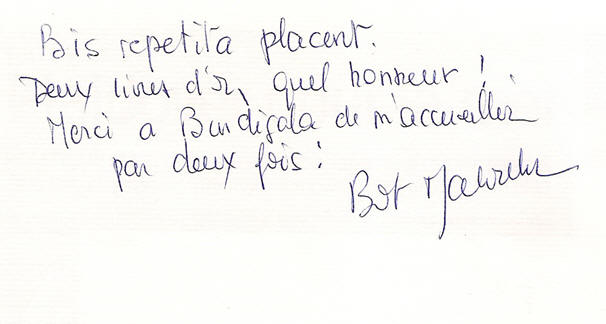 Bis repetita placent.
Deux livres d'or, quel honneur !
Merci a Burdigala de m'accueillir
par deux fois !